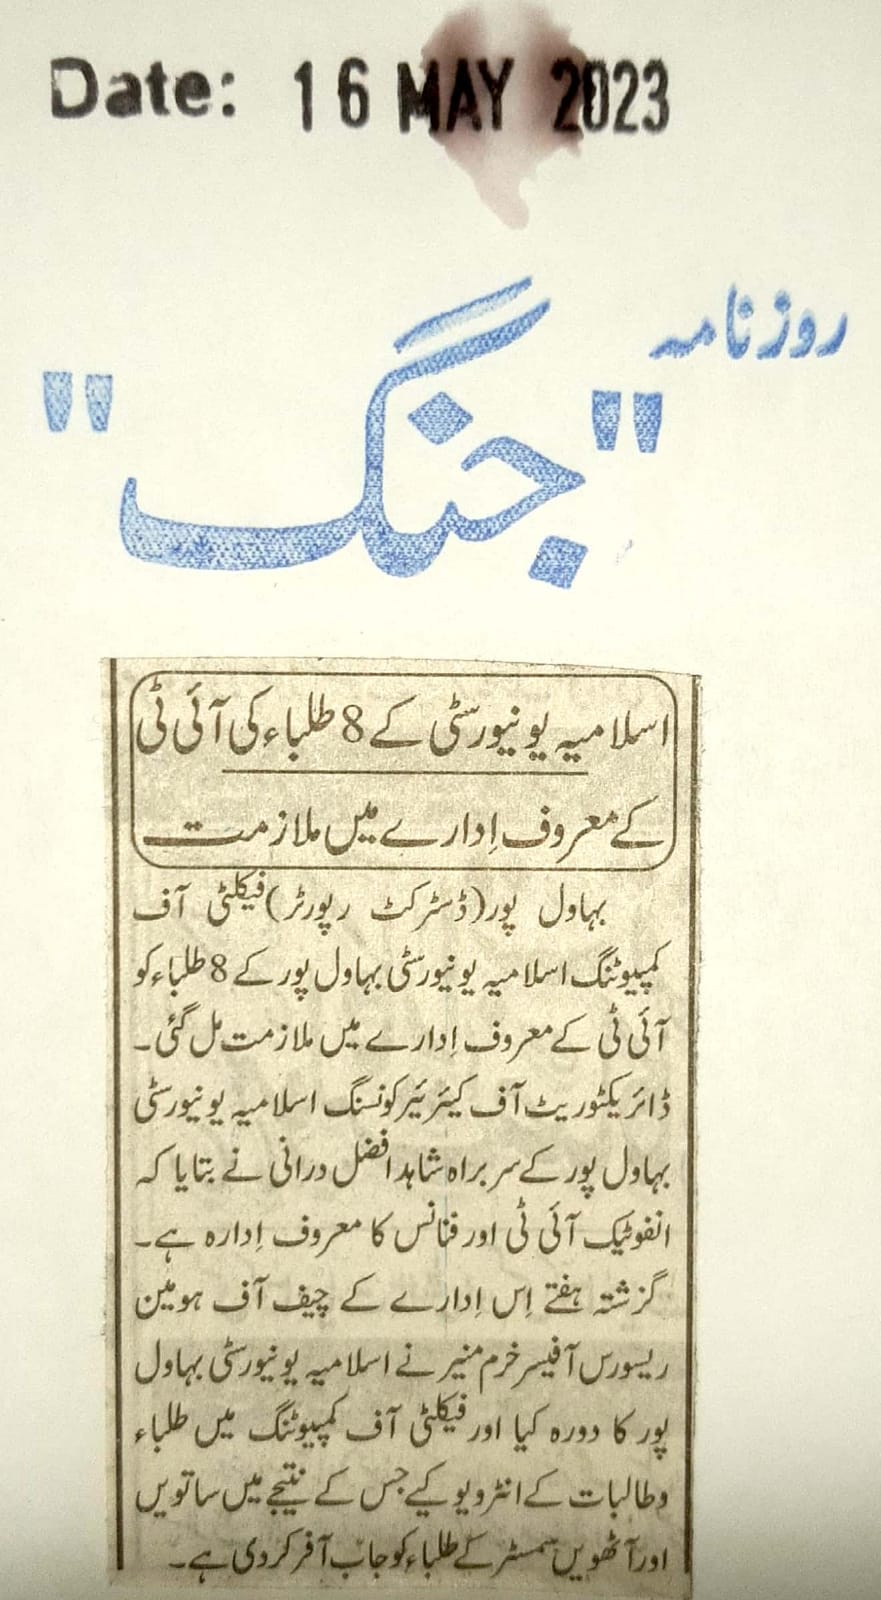 Date: 16 MAY 2023
روزنامہ
"جنگ"
اسلامیہ یونیورسٹی کے 8 طلباء کی آئی ٹی
کے معروف اِدارے میں ملازمت
بہاول پور (ڈسٹرکٹ رپورٹر) فیکلٹی آف
کمپیوٹنگ اسلامیہ یونیورسٹی بہاول پور کے 8 طلباء کو
آئی ٹی کے معروف اِدارے میں ملازمت مل گئی۔
ڈائریکٹوریٹ آف کیئریئر کونسنگ اسلامیہ یونیورسٹی
بہاول پور کے سربراہ شاہد افضل درانی نے بتایا کہ
انفوٹیک آئی ٹی اور فنانس کا معروف اِدارہ ہے۔
گزشتہ ہفتے اِس اِدارے کے چیف آف ہومین
ریسورس آفیسر خرم منیر نے اسلامیہ یونیورسٹی بہاول
پور کا دورہ کیا اور فیکلٹی آف کمپیوٹنگ میں طلباء
وطالبات کے انٹرویو کیے جس کے نتیجے میں ساتویں
اور آٹھویں سمسٹر کے طلباء کو جاب آفر کر دی ہے۔